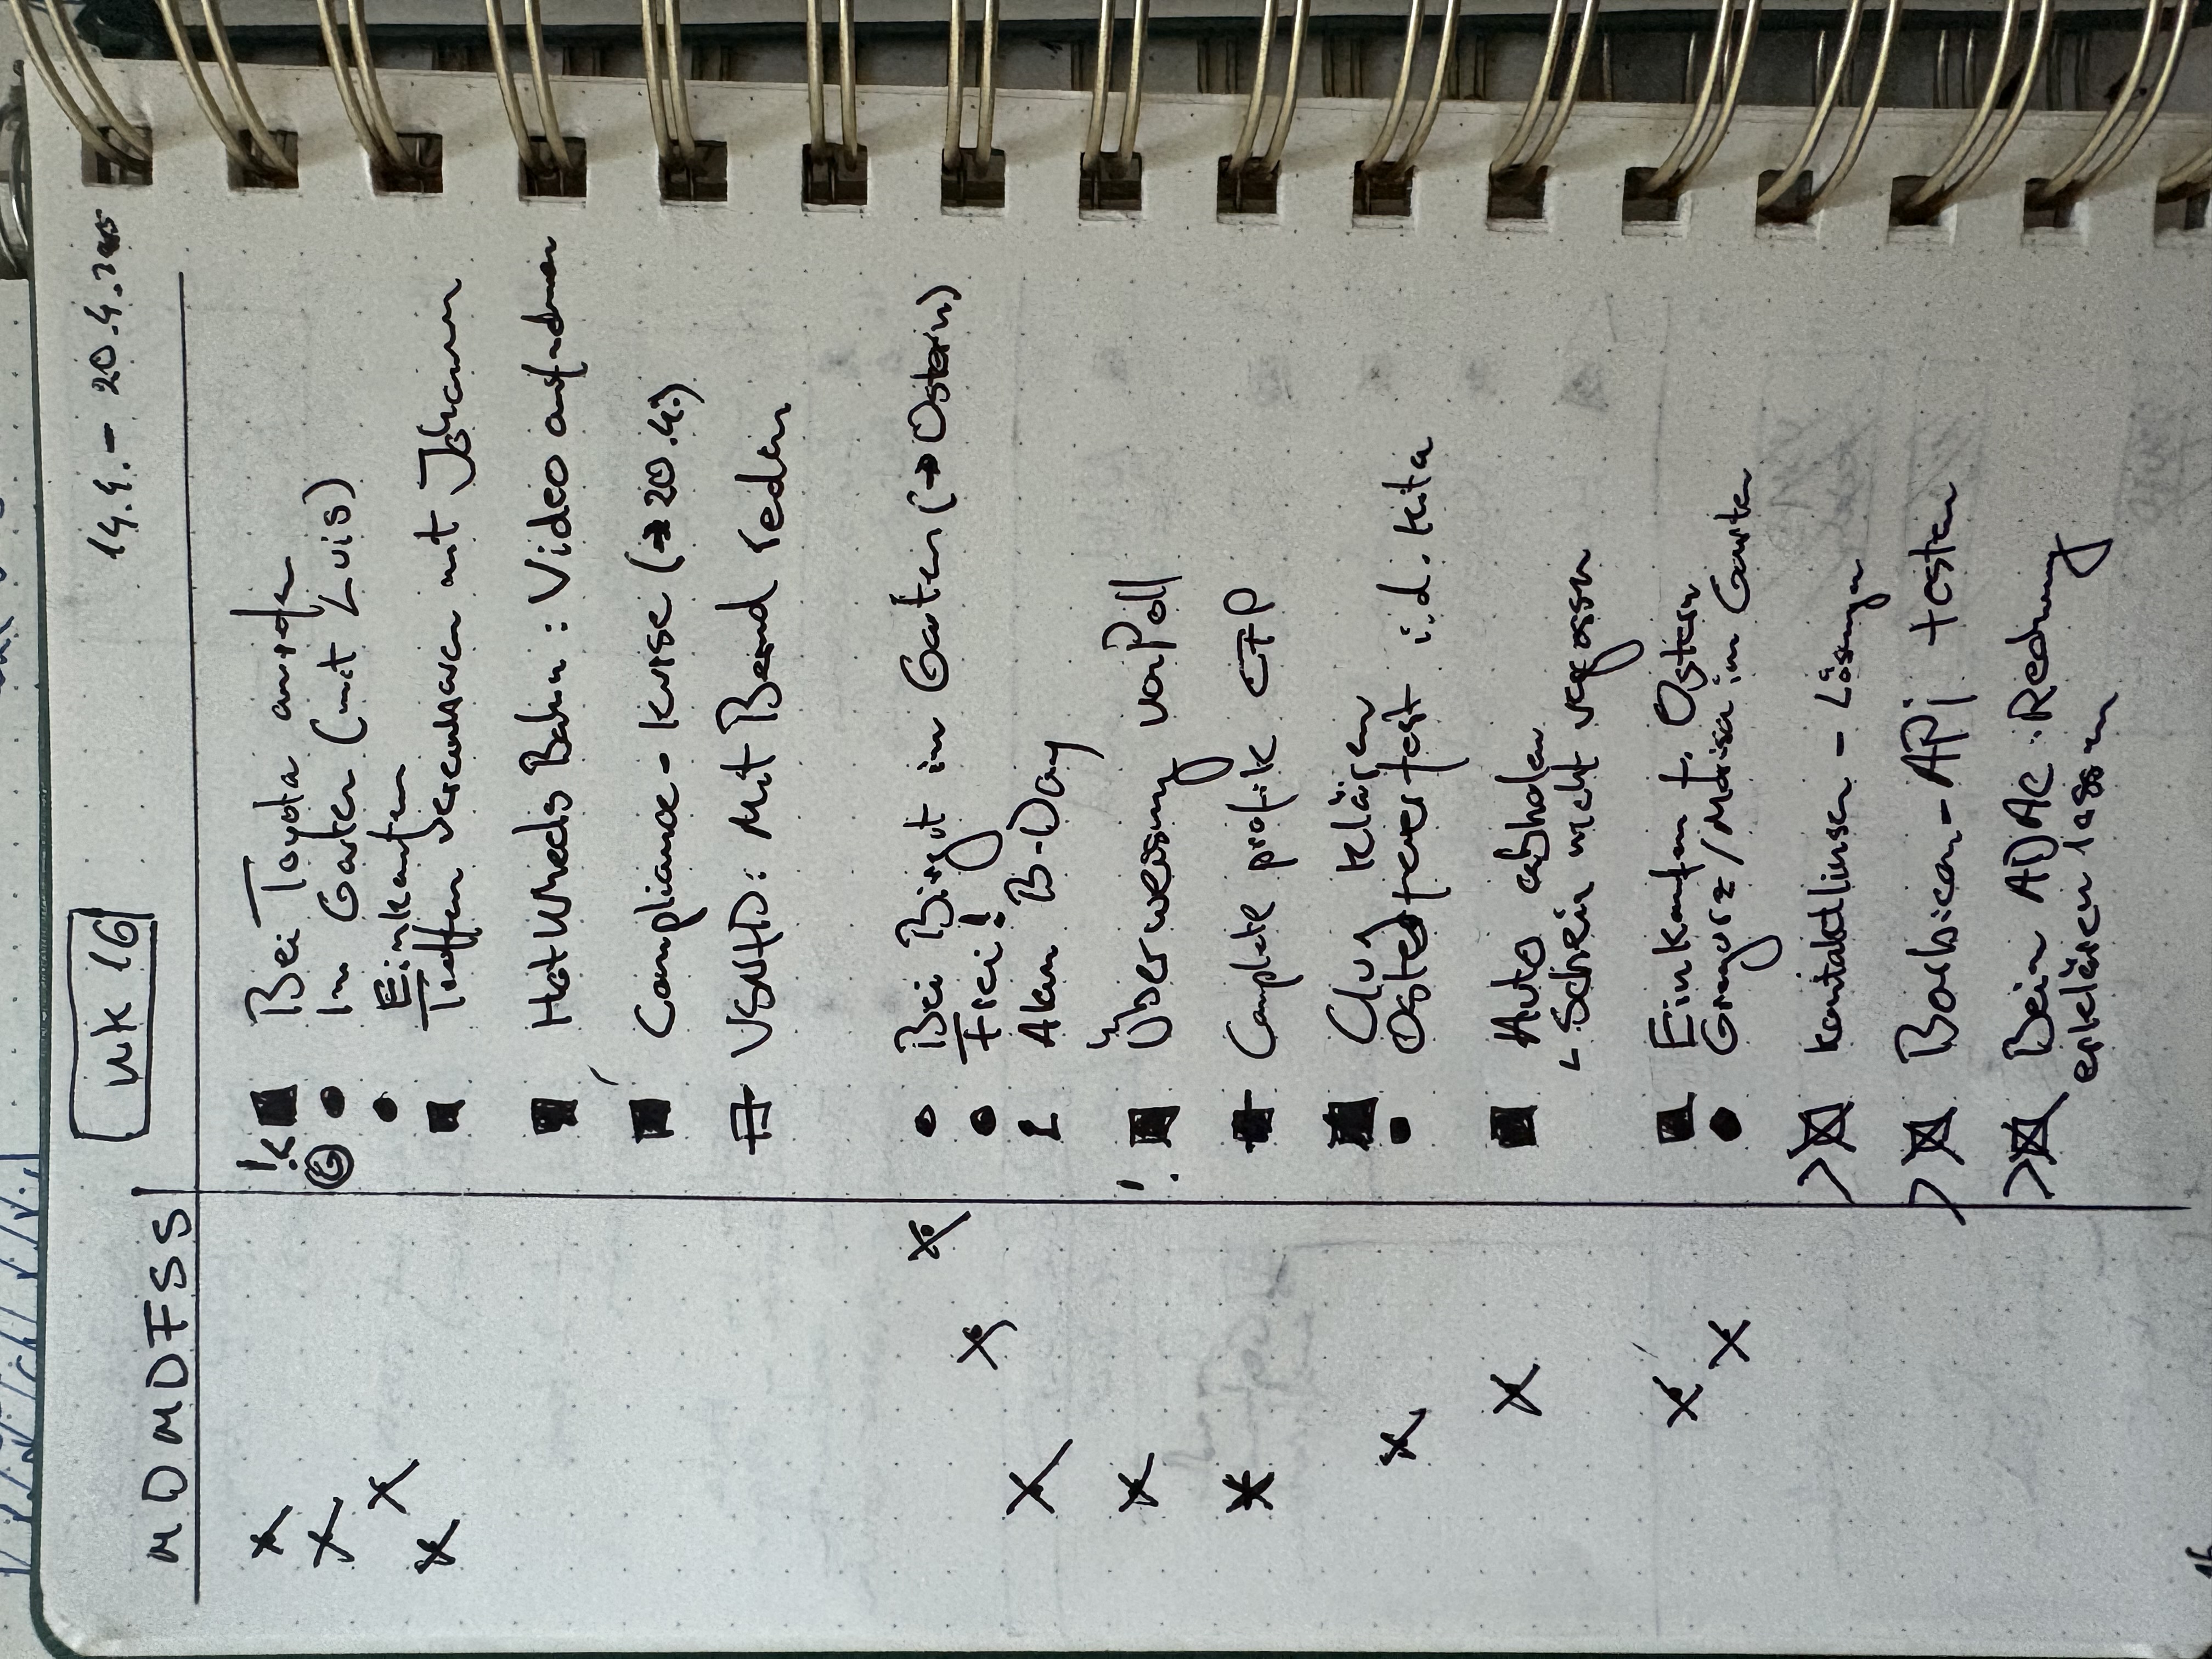 WK 16 14.4. - 20.4.
M D M D F S S
Bei Toyota anrufen
Im Garten (mit Luis)
Einkaufen
Treffen vereinbaren mit Johann
HotWheels Bahn: Video aufnehmen
Compliance-Kurse (→ 20.4.)
Mit Bernd reden
Bei Birgit im Garten (→ Ostern)
Frei!
B-Day
! Überweisung von Poll
Complete profile
klären
Osterfeuerfest i.d. Kita
Auto abholen
Schein nicht vergessen
Einkaufen f. Ostern
im Garten
> Kontaktlinsen - Lösungen
> Barbican-API testen
> Beim ADAC: Rechnung
erklären lassen